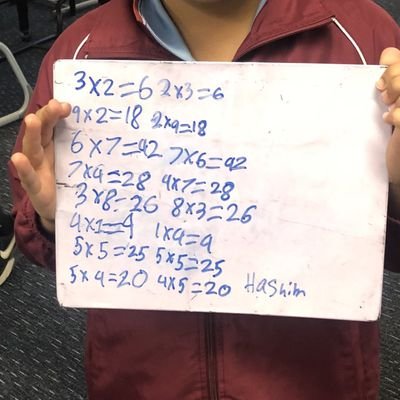 3×2=6 2×3=6
9×2=18 2×9=18
6×7=42 7×6=42
7×4=28 4×7=28
3×8=26 8×3=26
4×1=4 1×4=4
5×5=25 5×5=25
5×4=20 4×5=20 Hashim